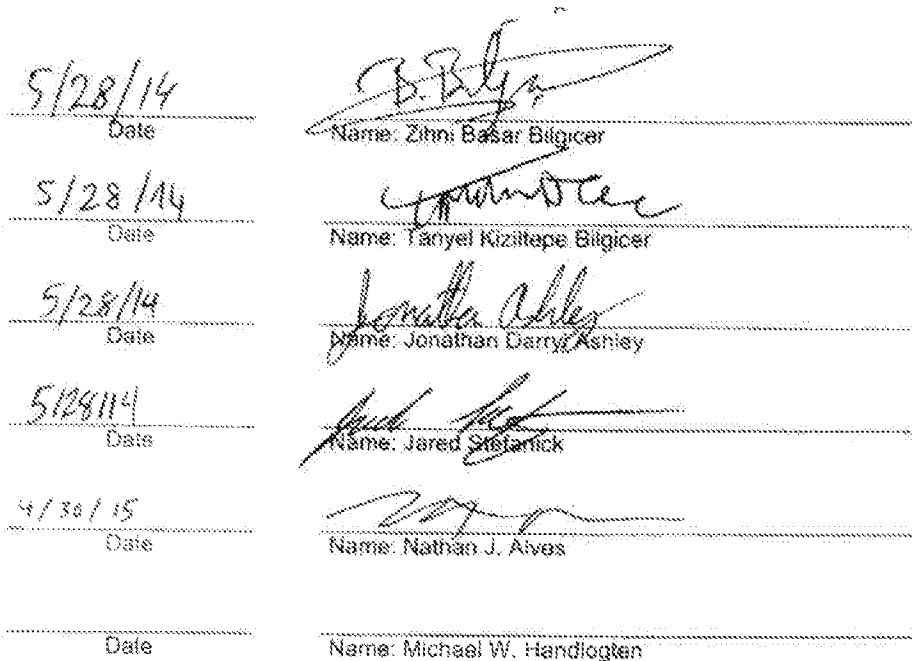 5/28/14 B. Bilgi
Date Name: Zihni Basar Bilgicer
5/28/14
Date Name: Tanyel Kiziltepe Bilgicer
5/28/14 Jonathan Ashley
Date Name: Jonathan Darryl Ashley
5/28/14
Date Name: Jared Stefanick
4/30/15
Date Name: Nathan J. Alves
Date Name: Michael W. Handlogten